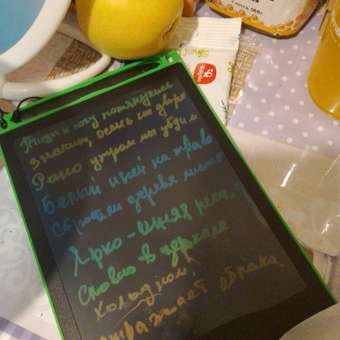 Птицы к югу потянулись
Значит, осень на дворе
Рано утром мы увидим
Белый иней на траве
Сбросили деревья листья
Ярко-синяя река,
Словно в зеркале
холодном,
отражает облака